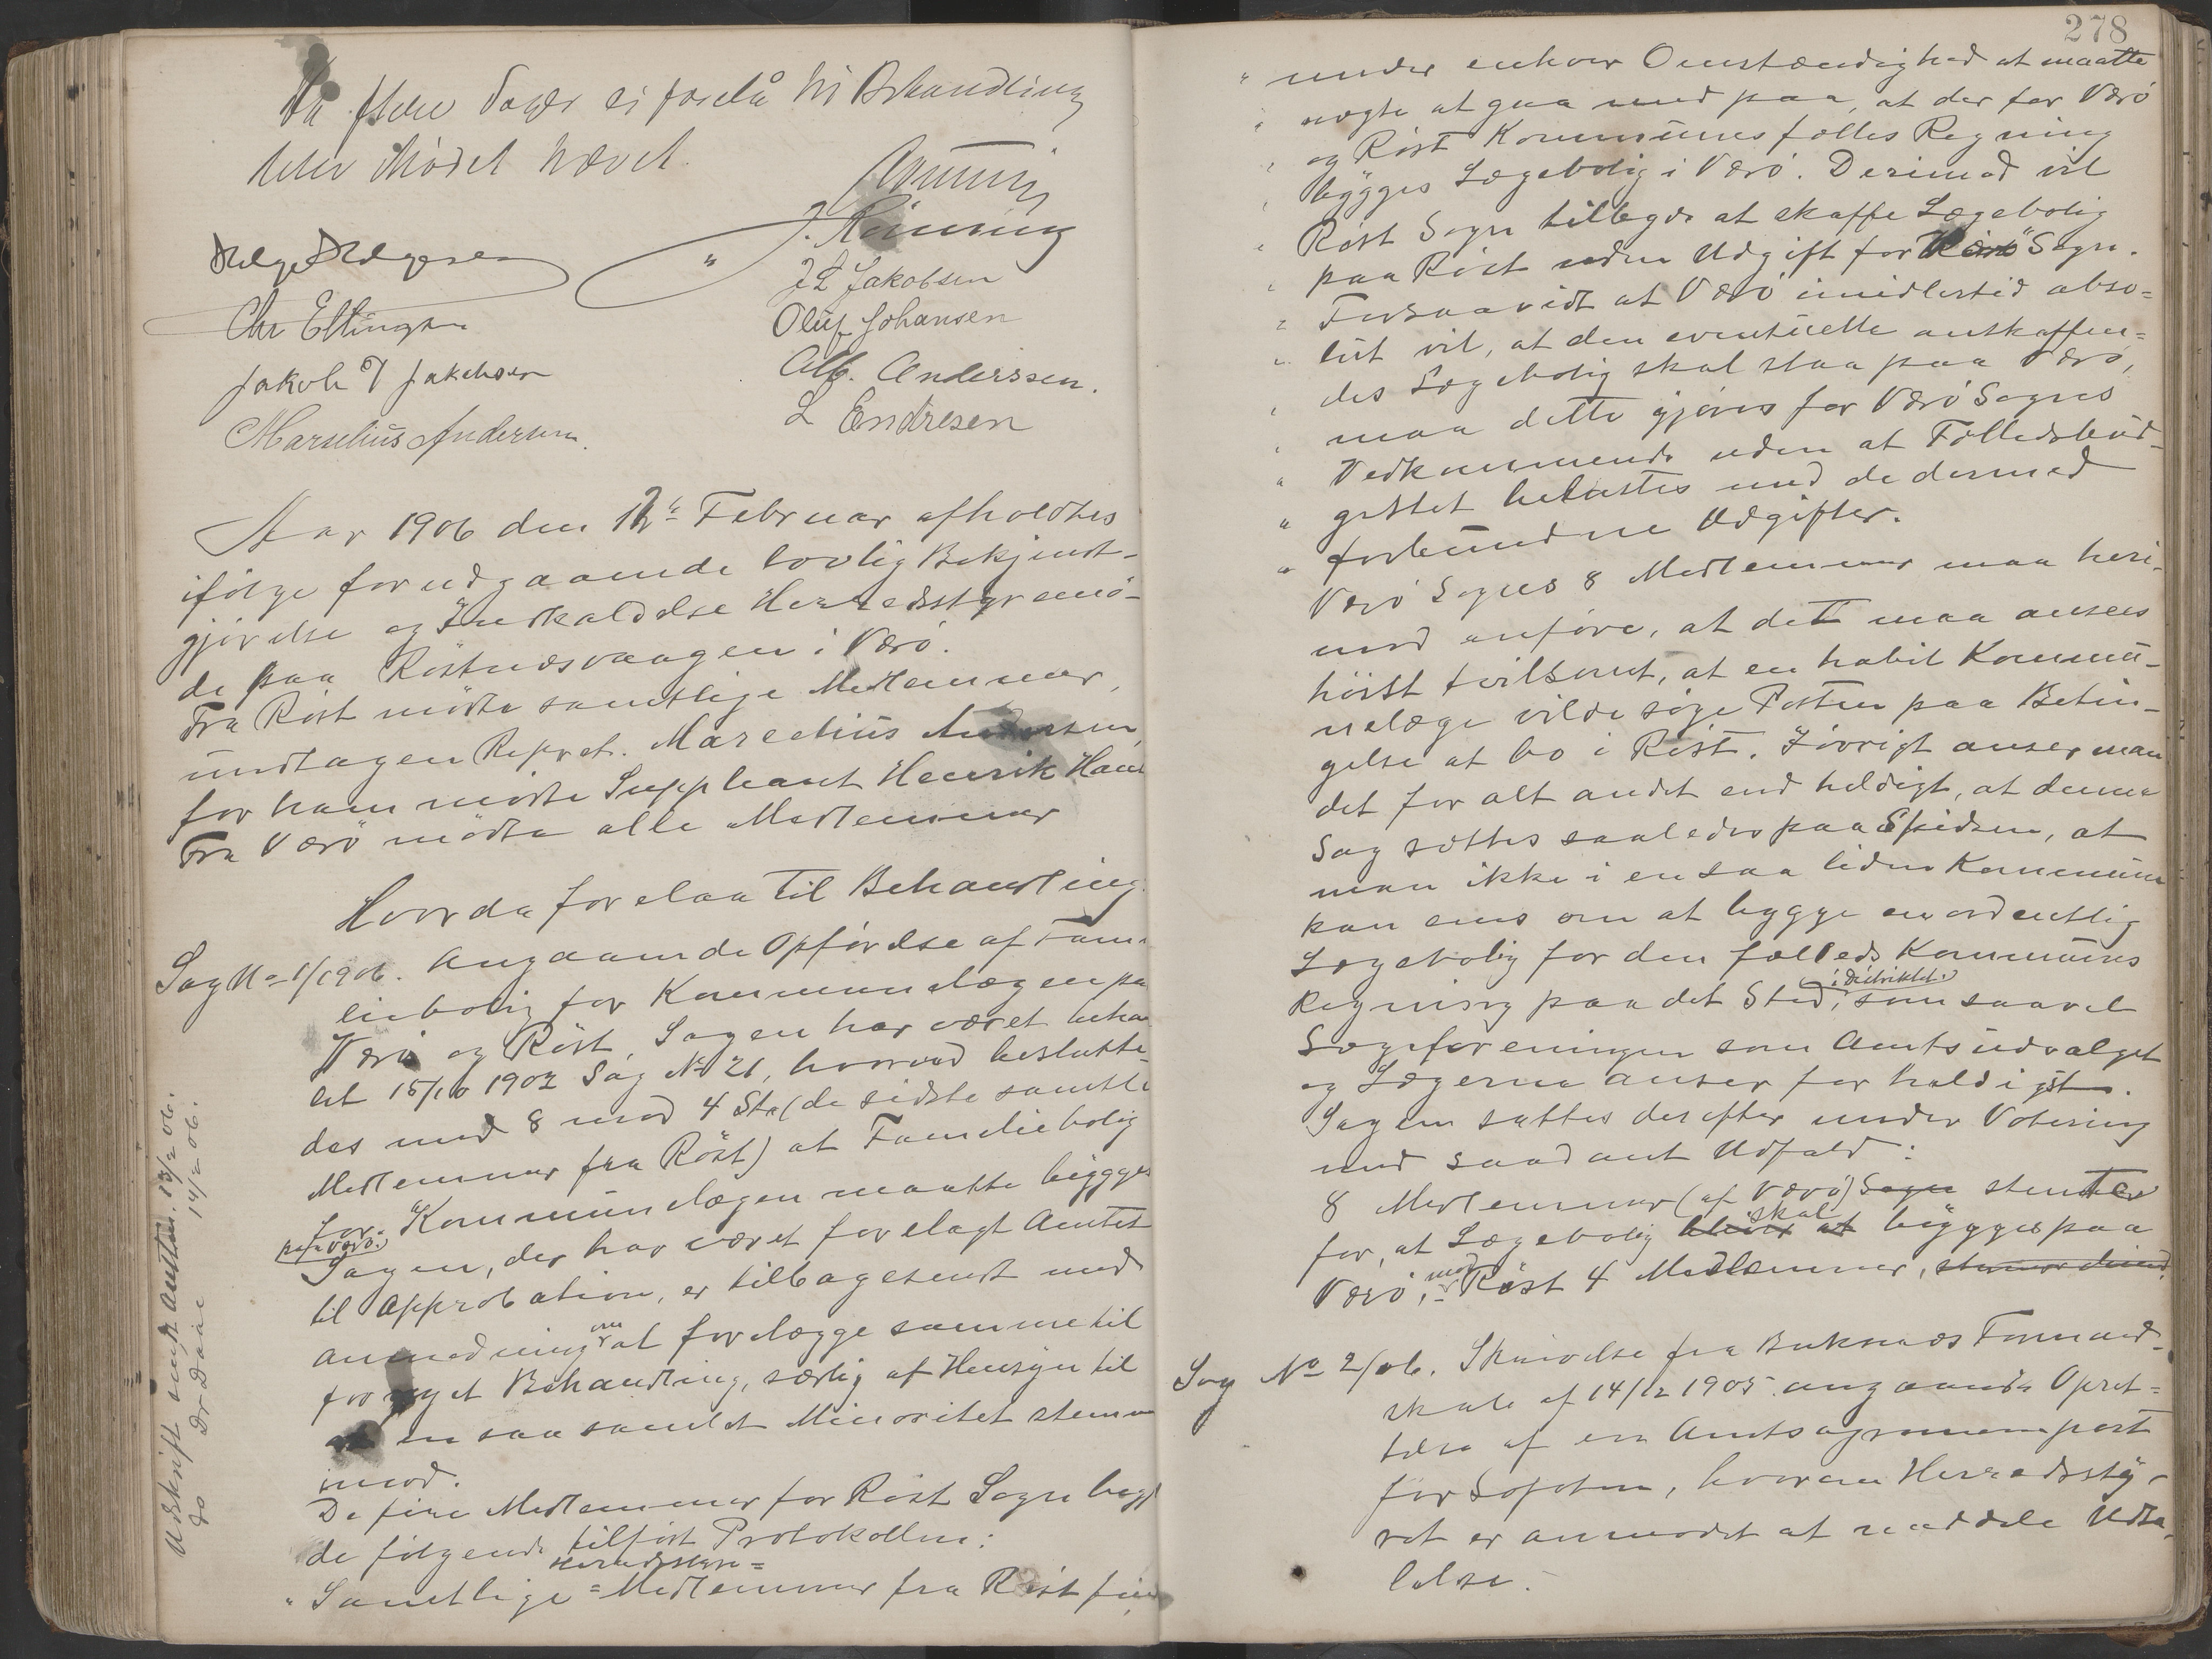 Da flere Sager ei forelå til Behandling
blev Mødet hævet.
J. Rönning
Helge Helgesen
J L Jakobsen
Chr Ellingsen
Oluf Johansen
Jakob T Jakobsen
Alb. Anderssen.
Marselius Andersen.
L Endresen
Aar 1906 den 12te Februar afholdtes
ifölge forudgaaende lovlig Bekjendt-
gjörelse og Indkaldelse Herredsstyremö-
de paa Röstnesvaagen i Værö.
Fra Röst mödte samtlige Medlemmer,
undtagen Repræt. Marselius Andersen,
for ham mödte Suppleant Henrik Hans
Fra Værö mödte alle Medlemmer
Hvorda forelaa til Behandling.
Sag No 1/1906. Angaaende Opförelse af Fami-
liebolig for Kommunelægen paa
Værö og Röst. Sagen har været behan
let 15/10 1902 Sag No 21, hvorved beslutte-
des med 8 mod 4 St. (de sidste samtl.
Medlemmer fra Röst) at Familiebolig
for Kommunelægen maatte bygges
paa Værö.
Sagen, der har været forelagt Amtet
til Approbation, er tilbagesendt med
Anmodning om at forelægge samme til
fornyet Behandling, særlig af Hensyn til
at en saa samlet Minoritet stemm
imod.
De fire Medlemmer for Röst Sogn begj
de fölgende tilfört Protokollen:
"Samtlige Herredsstyre= =Medlemmer fra Röst fin
Udskrift sendt Amtet 13/2 06.
do Dr Daae 14/2 06.
278
" under enhver Omstændighed at maatte
" negte at gaa med paa, at der for Værö
" og Röst Kommunes fælles Regning
" bygges Lægebolig i Værö. Derimod vil
" Röst Sogn tillegde at skaffe Lægebolig
" paa Röst uden Udgift for Værö Sogn.
" Forsaavidt at Værö imidlertid abso=
" lut vil, at den eventuelle anskaffen=
" des Lægebolig skal staa paa Værö,
" maa dette gjöres for Værö Sogns
" Vedkommende uden at Fælledsbud-
" gettet belastes med de dermed
" forbundne Udgifter.
Værö Sogns 8 Medlemmer maa heri-
mod anföre, at det maa ansees
höist tvilsomt, at en habil Kommu-
nelæge vilde söge Posten paa Betin-
gelse at bo i Röst. Iövrigt anser man
det for alt andet end heldigt, at denne
Sag sættes saaledes paa Spidsen, at
man ikke i en saa liden Kommune
kan enes om at bygge en ordentlig
Lægebolig for den fælleds Kommunes
Regning paa det Sted i Distriktet, som saavel
Lægeforeningen som Amtsudvalget
og Lægerne anser for heldigst.
Sagen sattes derefter under Votering
med saadant Udfald:
8 Medlemmer (af Værö) Sogn stemte
for, at Lægebolig bliver at skal bygges paa
Værö, mod Röst 4 Medlemmer, stemmer derimod.
Sag No 2/06. Skrivelse fra Buksnæs Formand-
skab af 14/12 1905 angaaende Opret=
telse af en Amtsagronompost
for Lofoten, hvorom Herredssty-
ret er anmodet at meddele Udta-
lelse.